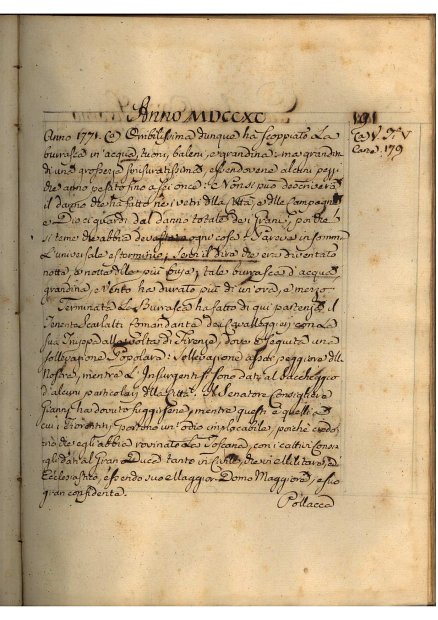 Anno MDCCXC
191
Anno 1771. Orribilissima dunque ha scoppiato la
burrasca in acqua, tuoni, baleni, e grandine: ma grandin
di una grossezza smisuratissima, essendovene alcuni pezzi
che anno pesato fino a sei once: Non si può descrivere
il danno che ha fatto nei vetri della Città, e delle Campagne
e Dio ci guardi dal danno totale dei Grani, poiche
si teme che abbia devastato ogni cosa: Pareva in somma
L'universale esterminio; Senti il dire che era diventato
notte, e notte delle più buje; tale burrasca d'acqua
grandine, e Vento ha durato più di un'ora, e mezzo
Terminata la Burrasca ha fatto di qui partenza il
Tenente Comandante dei Cavalleggieri con la
sua Truppa alla volta di Firenze, dove è seguita una
sollevazione Popolare: Sollevazione assai peggiore della
Nostra, mentre l'Insurgenti si sono dati al saccheggio
d'alcuni particolari della Città. Il Senatore Consigliere
Gianni ha dovuto fuggirsene, mentre questi è quello a
cui i Fiorentini portono un odio implacabile, poiché credo,
no che egli abbia rovinato la Toscana, con i cattivi Consi,
gli dati al Gran Duca tanto in Civile, che in Militare, ed
Ecclesiastico, essendo suo Maggior-Domo Maggiore, e suo
gran confidente.
Pollacca
T. V.
Cane. 179